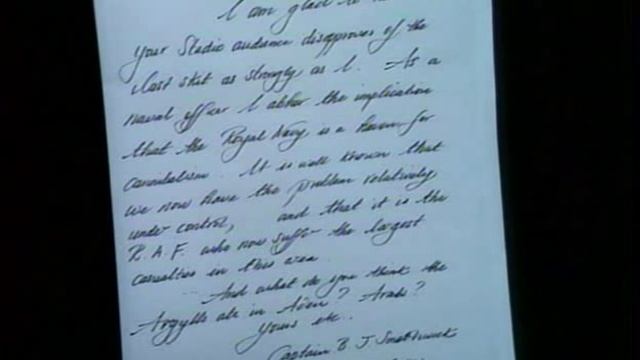 I am glad to
your Studio audience disapproves of the
last skit as strongly as I. As a
naval officer I abhor the implication
that the Royal Navy is a haven for
cannibalism. It is well known that
we now have the problem relatively
under control, and that it is the
R.A.F. who now suffer the largest
casualties in this area.
And what do you think the
Argylls ate in Aden? Arabs?
Yours etc.
Captain B. J.